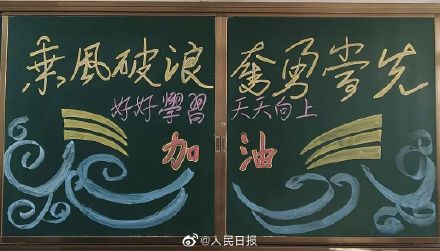 乘風破浪 奮勇當先
好好學習 天天向上
加油
@人民日报